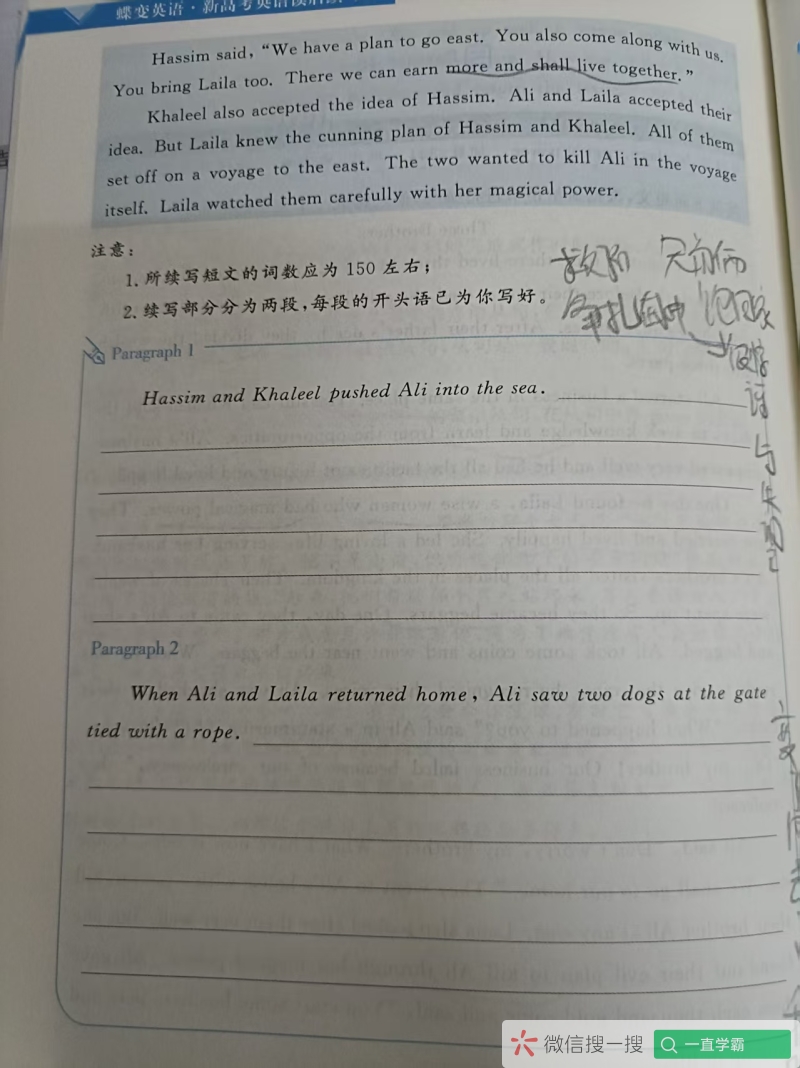 蝶变英语·新高考英语读后续
Hassim said, “We have a plan to go east. You also come along with us.
You bring Laila too. There we can earn more and shall live together.”
Khaleel also accepted the idea of Hassim. Ali and Laila accepted their
idea. But Laila knew the cunning plan of Hassim and Khaleel. All of them
set off on a voyage to the east. The two wanted to kill Ali in the voyage
itself. Laila watched them carefully with her magical power.
注意：
1. 所续写短文的词数应为 150 左右；
2. 续写部分分为两段，每段的开头语已为你写好。
Paragraph 1
Hassim and Khaleel pushed Ali into the sea.
Paragraph 2
When Ali and Laila returned home, Ali saw two dogs at the gate
tied with a rope.
微信搜一搜
一直学霸